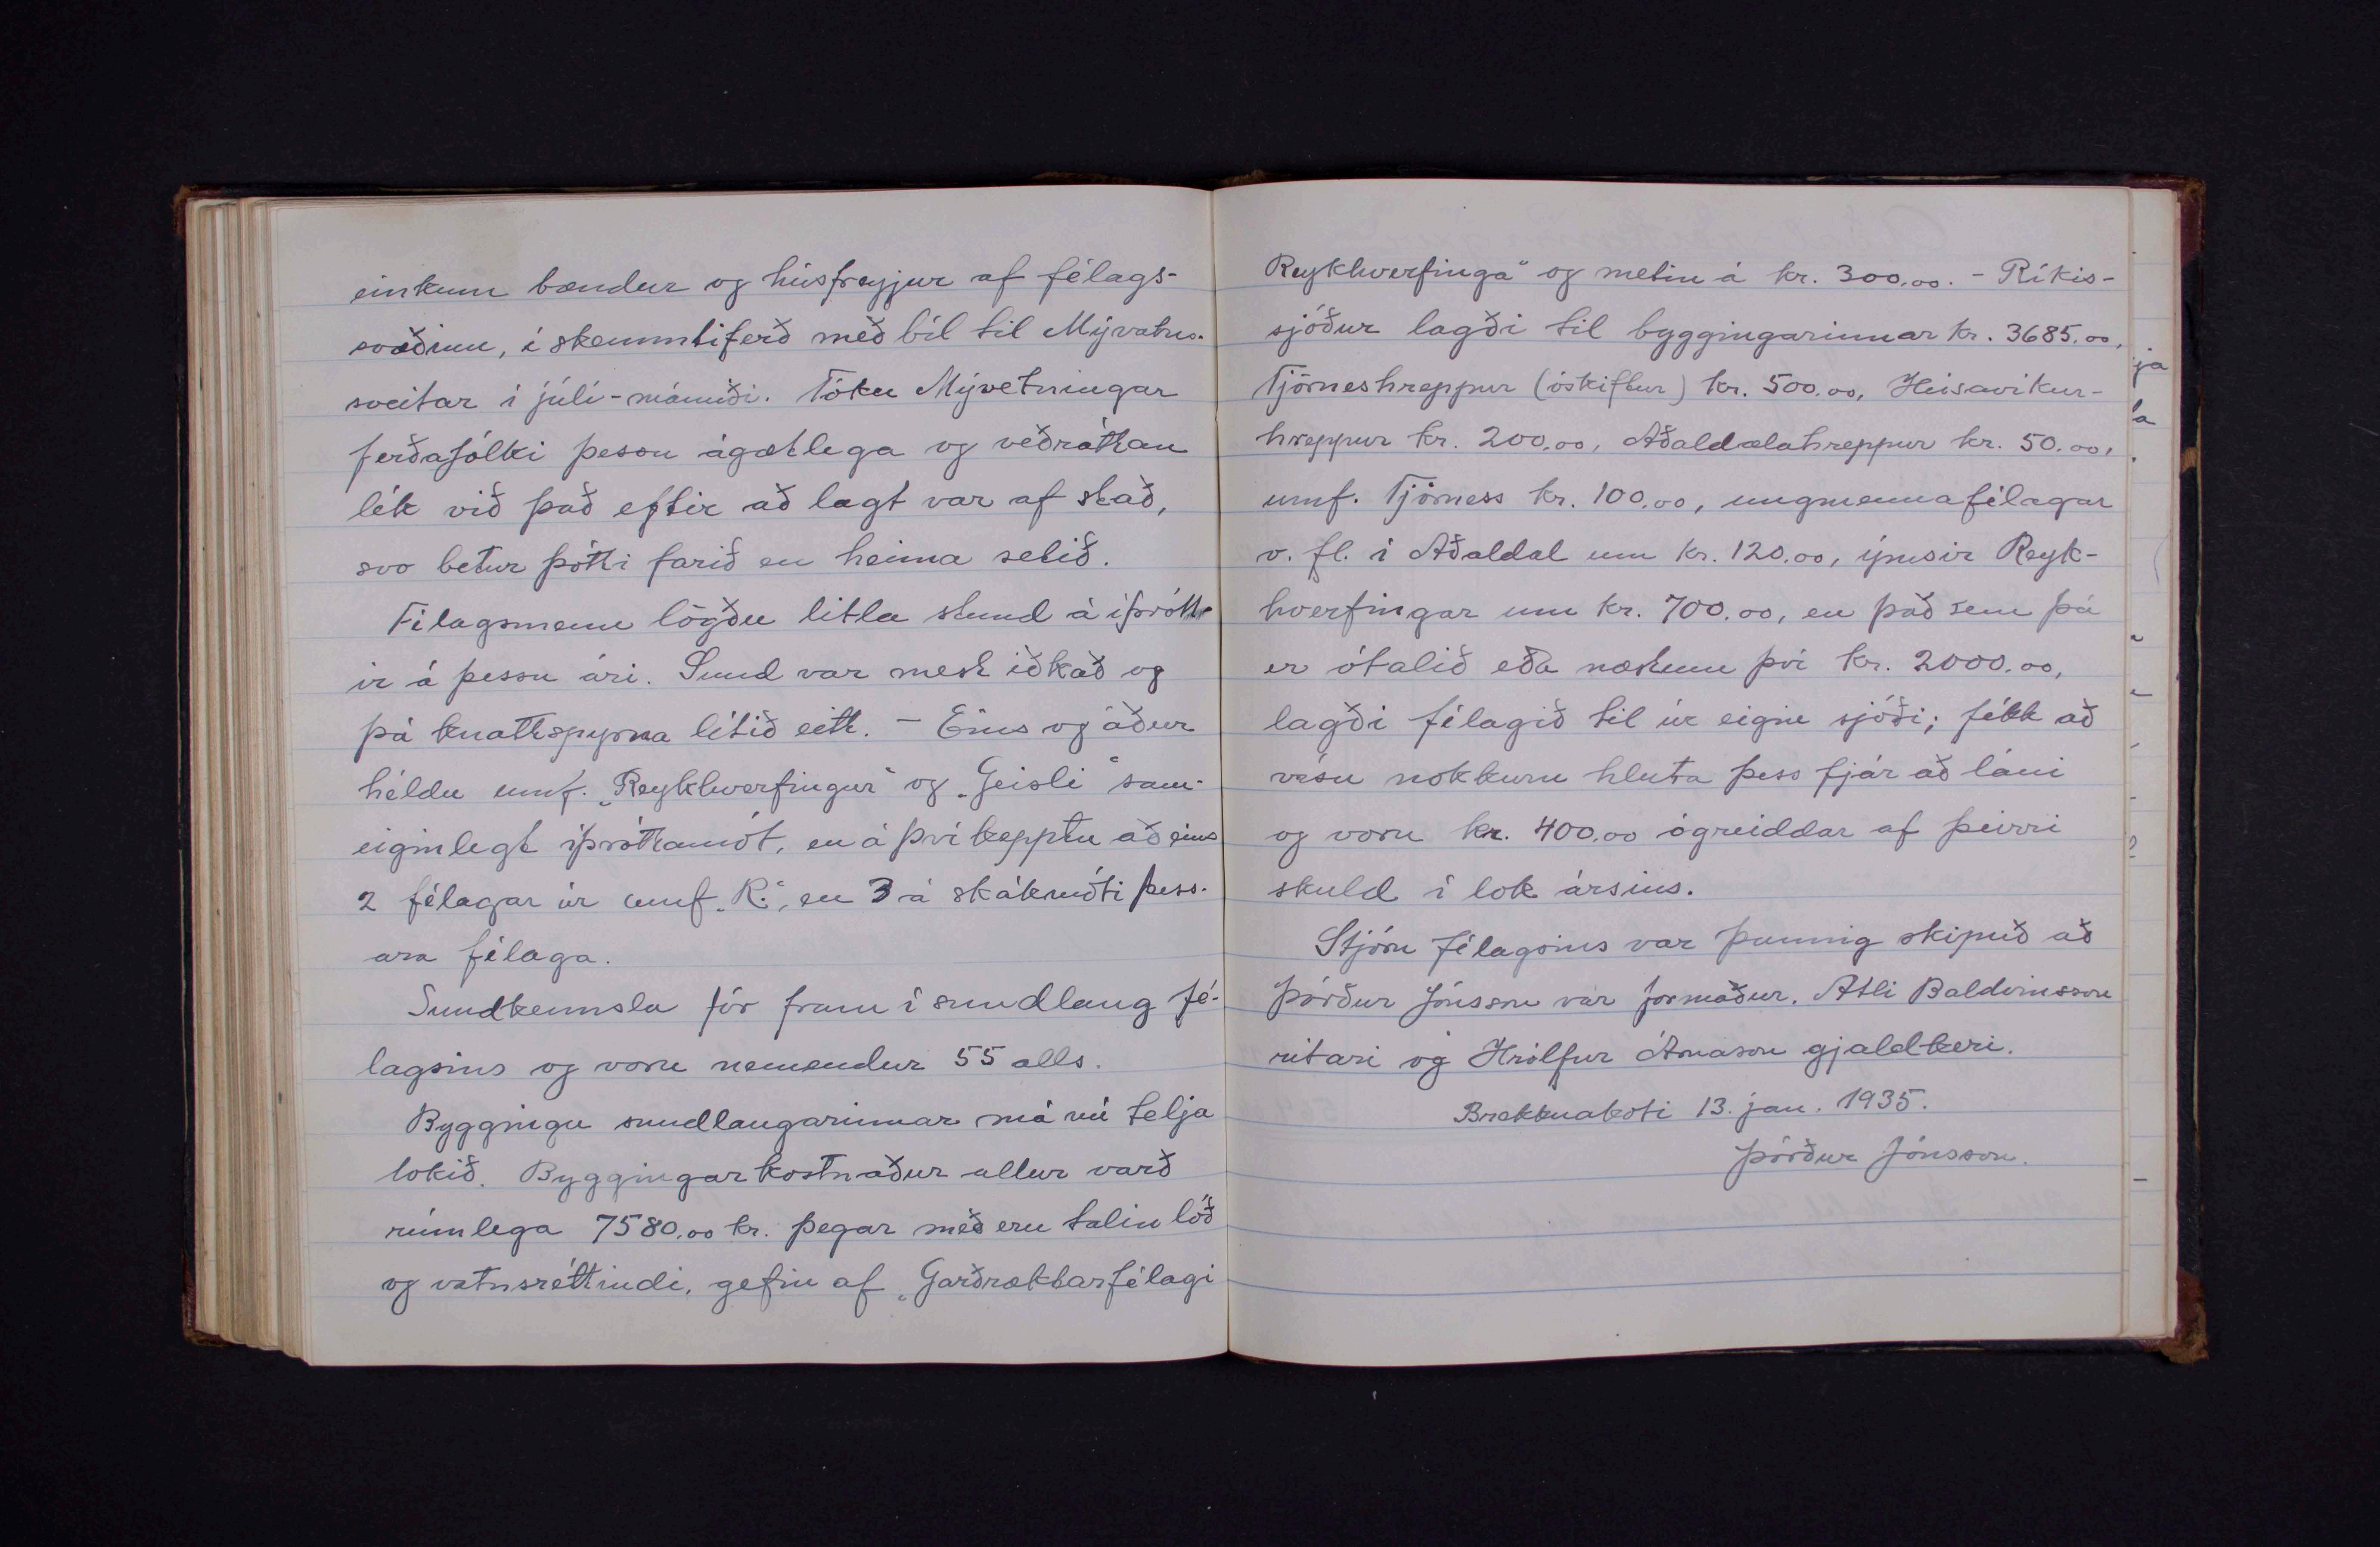 einkum bændur og húsfreyjur af félags-
svæðinu, í skemmtiferð með bíl til Mývatns-
sveitar í júlí-mánuði. Tóku Mývetningar
ferðafólki þessu ágætlega og veðráttan
lék við það eftir að lagt var af stað,
svo betur þótti farið en heima setið.
Félagsmenn lögðu litla stund á íþrótt-
ir á þessu ári. Sund var mest iðkað og
þá knattspyrna lítið eitt. - Eins og áður
héldu umf. „Reykhverfingur" og „Geisli" sam-
eiginlegt íþróttamót, en á því kepptu að eins
2 félagar úr umf. „R.", en 3 á skákmóti þess-
ara félaga.
Sundkennsla fór fram í sundlaug fé-
lagsins og voru nemendur 55 alls.
Byggingu sundlaugarinnar má nú telja
lokið. Byggingarkostnaður allur varð
rúmlega 7580.00 kr. þegar með eru talin lóð
og vatnsréttindi, gefin af „Garðræktarfélagi
Reykhverfinga" og metin á kr. 300.00. - Ríkis-
sjóður lagði til byggingarinnar kr. 3685.00,
Tjörneshreppur (óskiftur) kr. 500.00, Húsavíkur-
hreppur kr. 200.00, Aðaldælahreppur kr. 50.00,
umf. Tjörness kr. 100.00, ungmennafélagar
o. fl. í Aðaldal um kr. 120.00, ýmsir Reyk-
hverfingar um kr. 700.00, en það sem þá
er ótalið eða næstum því kr. 2000.00,
lagði félagið til úr eigin sjóði; fékk að
vísu nokkurn hluta þess fjár að láni
og voru kr. 400.00 ógreiddar af þeirri
skuld í lok ársins.
Stjórn félagsins var þannig skipuð að
Þórður Jónsson var formaður, Atli Baldvinsson
ritari og Hrólfur Árnason gjaldkeri.
Brekknakoti 13. jan. 1935.
Þórður Jónsson.